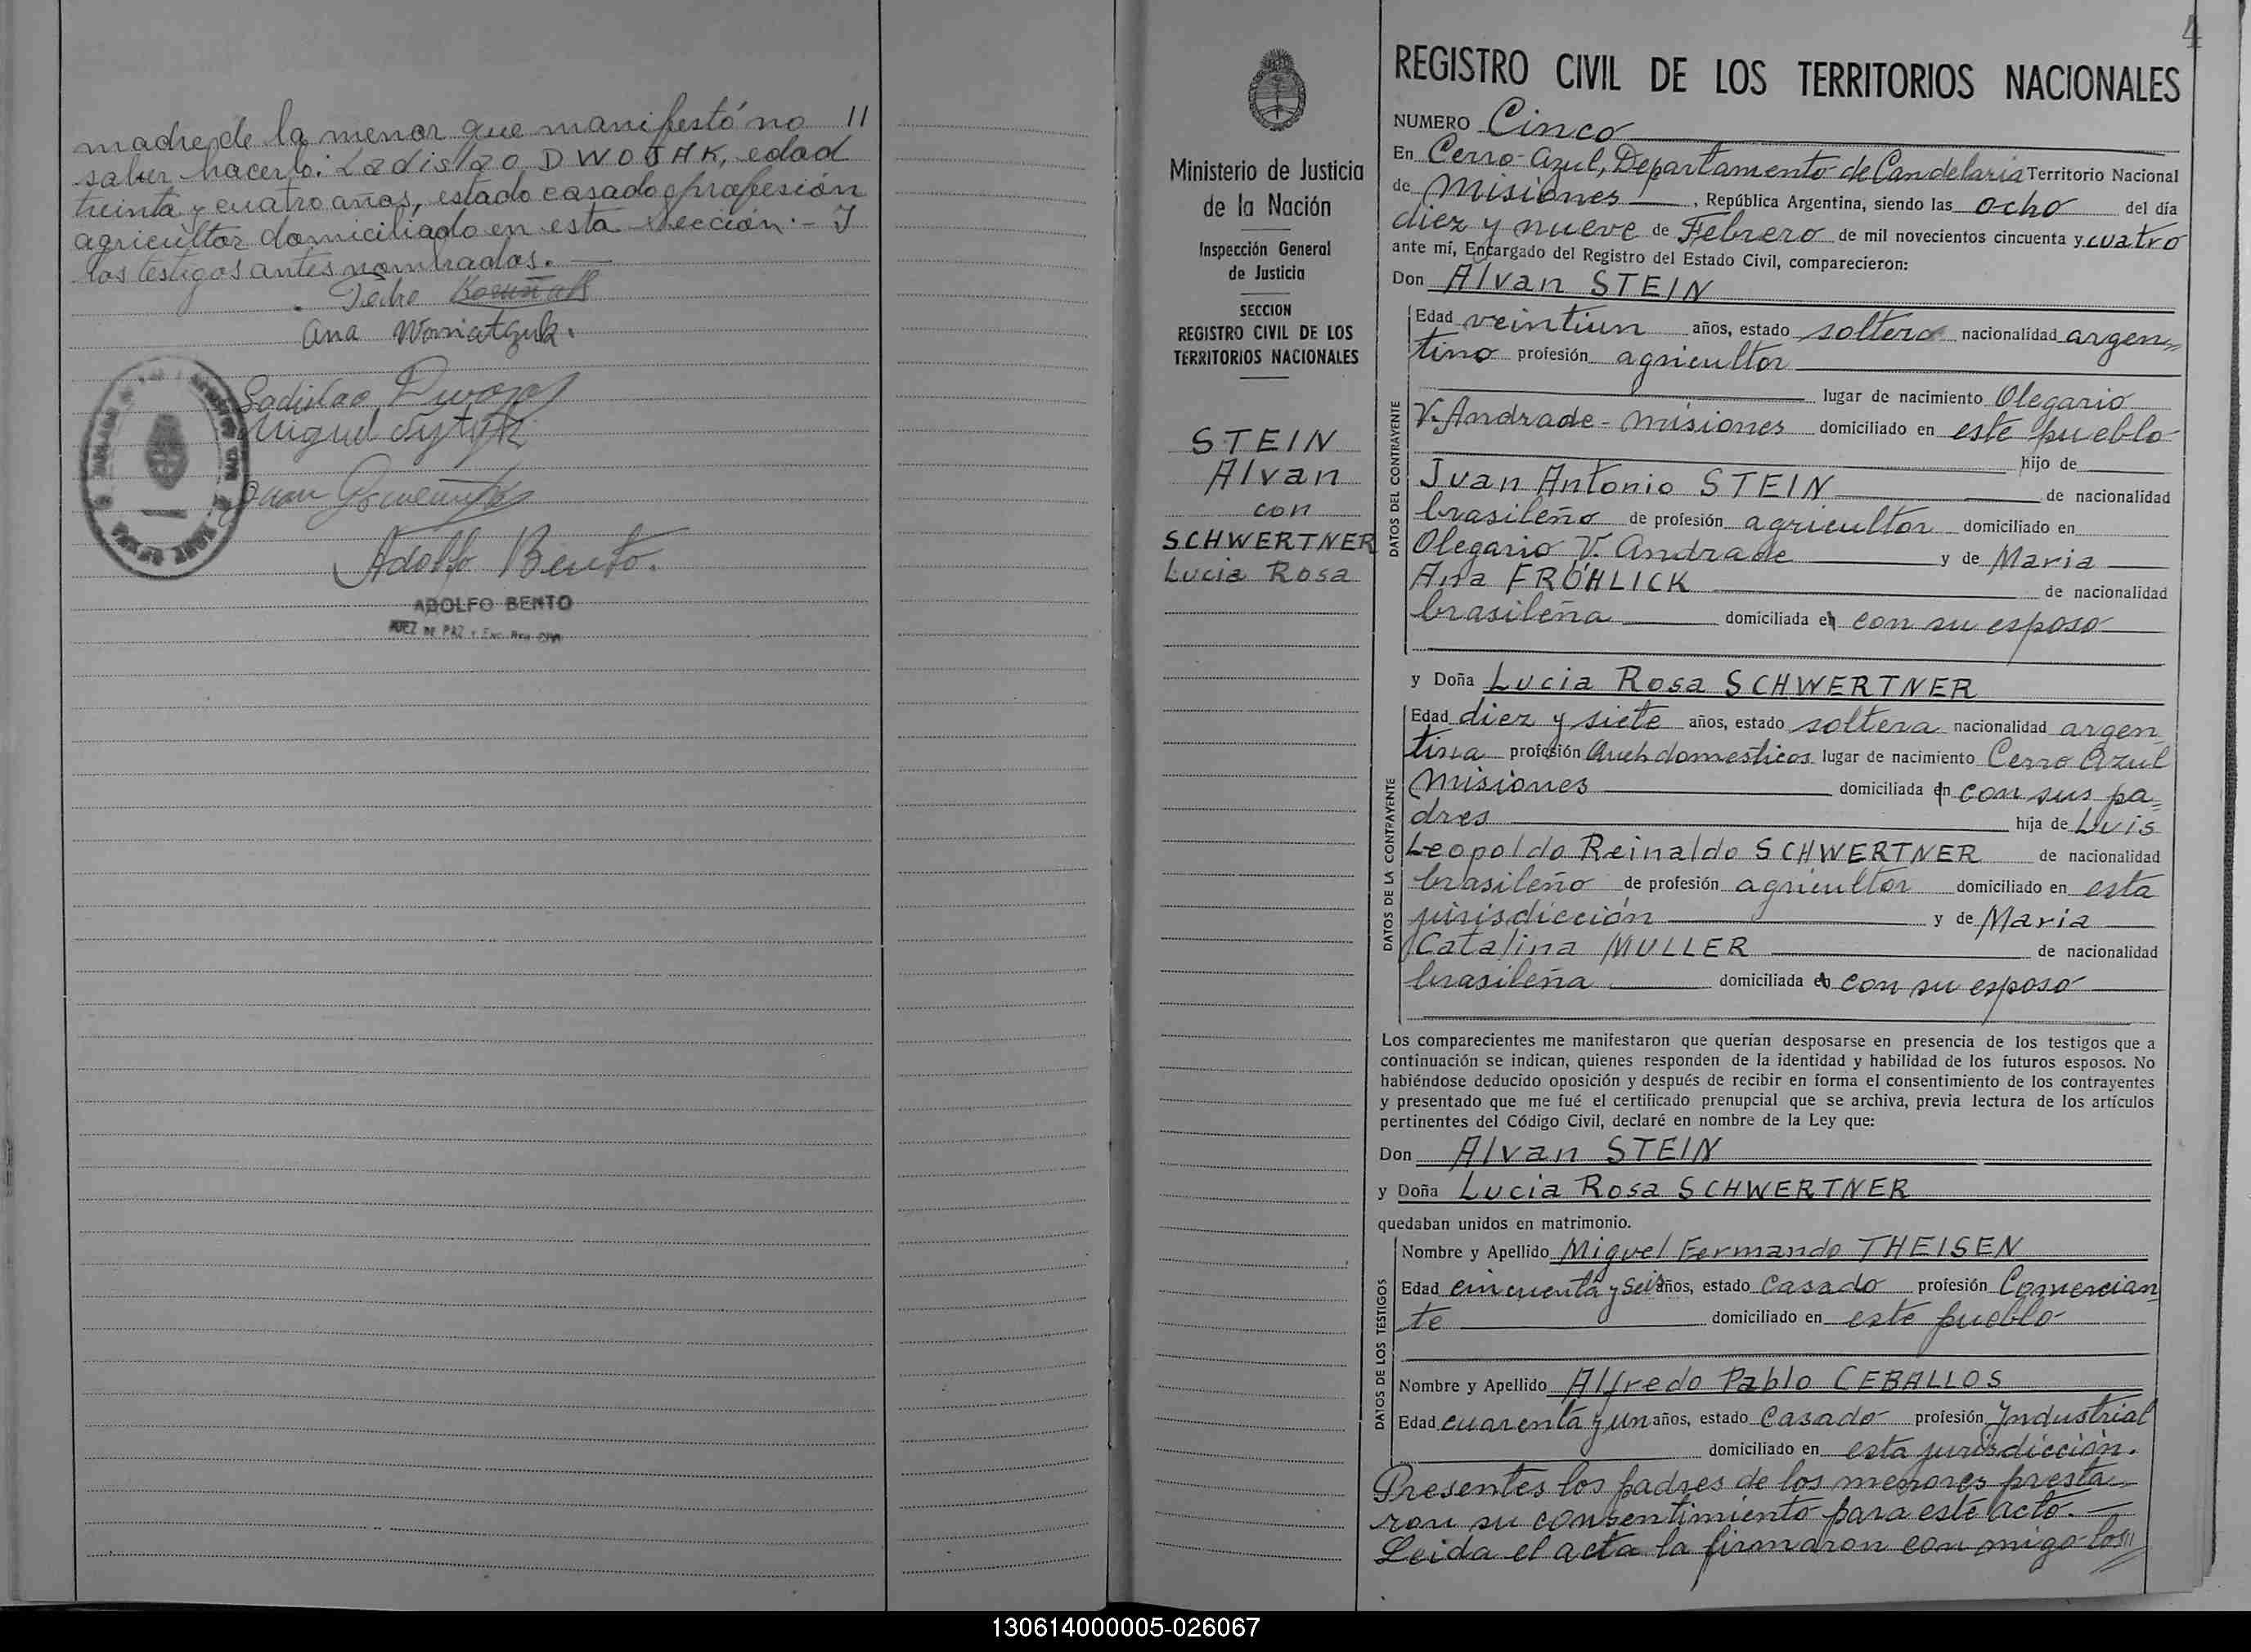 madre de la menor que manifestó no 11
saber hacerlo: Ladislao DWOJAK, edad
treinta y cuatro años, estado casado profesión
agricultor domiciliado en esta sección.- Y
los testigos antes nombrados.
Ana
Ladislao
Miguel
Juan
Adolfo Bento.
ADOLFO BENTO
JUEZ DE PAZ y Enc. Reg. Civil
4
Ministerio de Justicia
de la Nación
Inspección General
de Justicia
SECCION
REGISTRO CIVIL DE LOS
TERRITORIOS NACIONALES
STEIN
Alvan
con
SCHWERTNER
Lucia Rosa
REGISTRO CIVIL DE LOS TERRITORIOS NACIONALES
NUMERO Cinco
En Cerro-Azul, Departamento de Candelaria Territorio Nacional
de Misiones, República Argentina, siendo las ocho del día
diez y nueve de Febrero de mil novecientos cincuenta y cuatro
ante mí, Encargado del Registro del Estado Civil, comparecieron:
Don Alvan STEIN
DATOS DEL CONTRAYENTE
Edad veintiun años, estado soltero nacionalidad argen=
tino profesión agricultor
lugar de nacimiento Olegario
V. Andrade - Misiones domiciliado en este pueblo
hijo de
Juan Antonio STEIN de nacionalidad
brasileño de profesión agricultor domiciliado en
Olegario V. Andrade y de Maria
Ana FRÖHLICK de nacionalidad
brasileña domiciliada en con su esposo
y Doña Lucia Rosa SCHWERTNER
DATOS DE LA CONTRAYENTE
Edad diez y siete años, estado soltera nacionalidad argen
tina profesión Queh domesticos lugar de nacimiento Cerro Azul
Misiones domiciliada en con sus pa=
dres hija de Luis
Leopoldo Reinaldo SCHWERTNER de nacionalidad
brasileño de profesión agricultor domiciliado en esta
jurisdicción y de Maria
Catalina MULLER de nacionalidad
brasileña domiciliada en con su esposo
Los comparecientes me manifestaron que querían desposarse en presencia de los testigos que a
continuación se indican, quienes responden de la identidad y habilidad de los futuros esposos. No
habiéndose deducido oposición y después de recibir en forma el consentimiento de los contrayentes
y presentado que me fué el certificado prenupcial que se archiva, previa lectura de los artículos
pertinentes del Código Civil, declaré en nombre de la Ley que:
Don Alvan STEIN
y Doña Lucia Rosa SCHWERTNER
quedaban unidos en matrimonio.
DATOS DE LOS TESTIGOS
Nombre y Apellido Miguel Fermando THEISEN
Edad cincuenta y seis años, estado Casado profesión Comercian
te domiciliado en este pueblo
Nombre y Apellido Alfredo Pablo CEBALLOS
Edad cuarenta y un años, estado Casado profesión Industrial
domiciliado en esta jurisdicción.
Presentes los padres de los menores presta
ron su consentimiento para este acto.
Leida el acta la firmaron con migo los
130614000005-026067